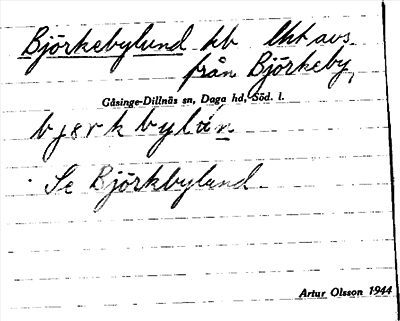 Björkebylund hb lht avs.
från Björkeby,
Gåsinge-Dillnäs sn, Daga hd, Söd. l.
bjərkbylán
Se Björkbylund
Artur Olsson 1944